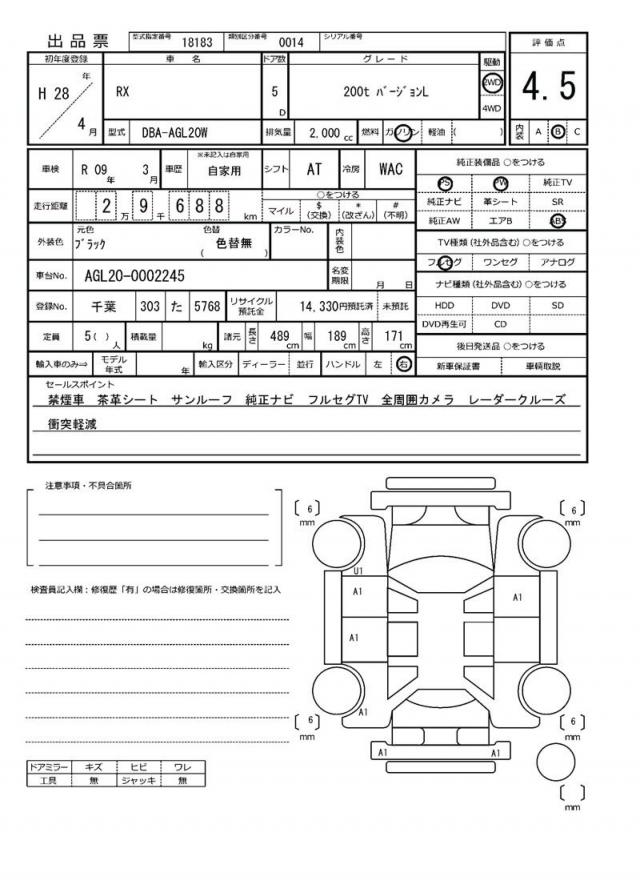 出品票
型式指定番号 18183 類別区分番号 0014 シリアル番号
初年度登録 車名 ドア数 グレード 駆動 評価点
H 28 年 4 月
RX 5 D 200t バージョンL 2WD 4WD 4.5
型式 DBA-AGL20W 排気量 2,000 cc 燃料 ガソリン 軽油 ( ) 内装 A B C
車検 R 09 年 3 月 車歴 ※未記入は自家用 自家用 シフト AT 冷房 WAC
走行距離 2 万 9 千 6 8 8 km ○をつける マイル $ (交換) * (改ざん) # (不明)
外装色 元色 ブラック 色替 ( 色替無 ) カラーNo. 内装色
車台No. AGL20-0002245 名変期限 月 日
登録No. 千葉 303 た 5768 リサイクル預託金 14,330円預託済 未預託
定員 5( ) 人 積載量 kg 諸元 長さ 489 cm 幅 189 cm 高さ 171 cm
輸入車のみ⇒ モデル年式 年 輸入区分 ディーラー 並行 ハンドル 左 右
純正装備品 ○をつける
PS PW 純正TV
純正ナビ 革シート SR
純正AW エアB ABS
TV種類(社外品含む) ○をつける
フルセグ ワンセグ アナログ
ナビ種類(社外品含む) ○をつける
HDD DVD SD
DVD再生可 CD
後日発送品 ○をつける
新車保証書 車輌取説
セールスポイント
禁煙車 茶革シート サンルーフ 純正ナビ フルセグTV 全周囲カメラ レーダークルーズ
衝突軽減
注意事項・不具合箇所
検査員記入欄:修復歴「有」の場合は修復箇所・交換箇所を記入
ドアミラー キズ ヒビ ワレ
工具 無 ジャッキ 無
[ 6 ] mm
[ 6 ] mm
U1
A1
A1
A1
A1
[ 6 ] mm
[ 6 ] mm
A1 A1
[ ] mm